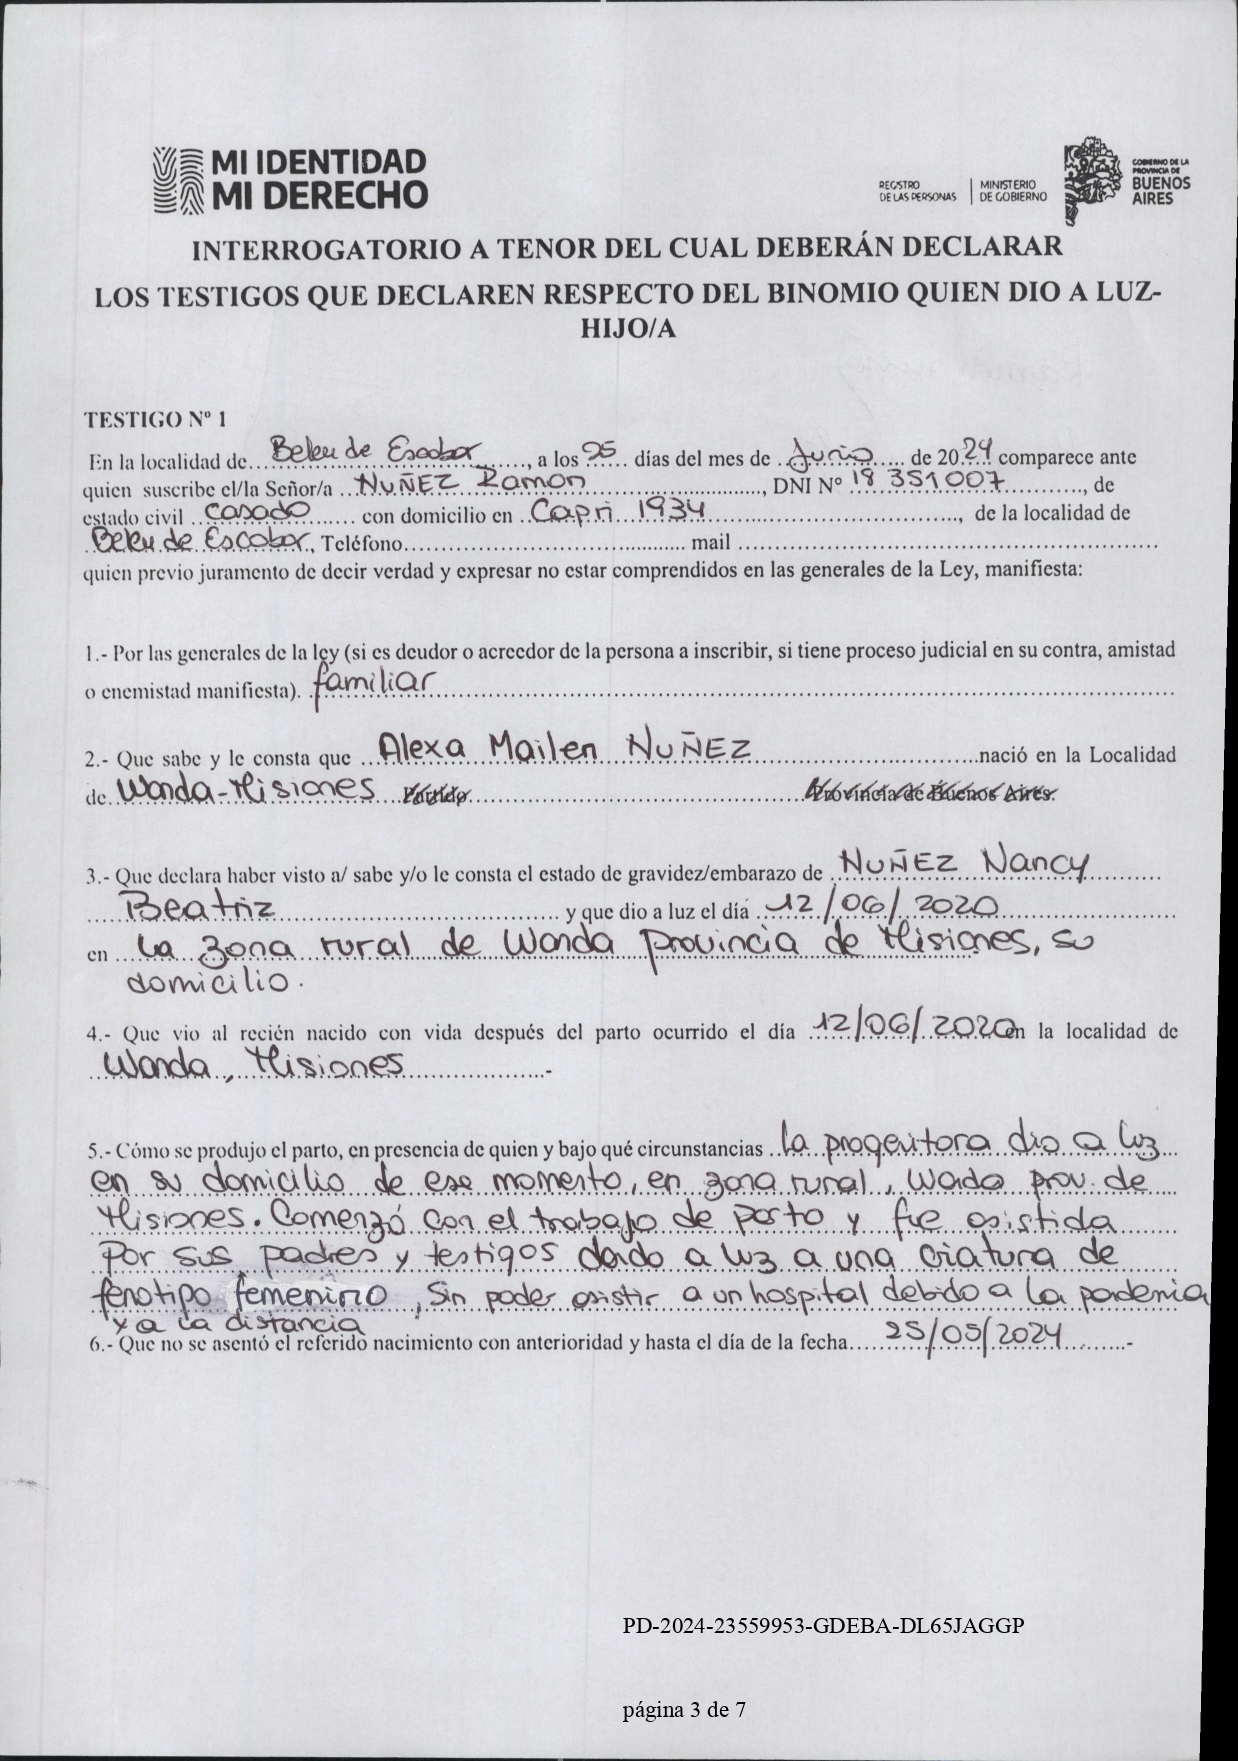 MI IDENTIDAD
MI DERECHO
REGISTRO
DE LAS PERSONAS
MINISTERIO
DE GOBIERNO
GOBIERNO DE LA
PROVINCIA DE
BUENOS
AIRES
INTERROGATORIO A TENOR DEL CUAL DEBERÁN DECLARAR
LOS TESTIGOS QUE DECLAREN RESPECTO DEL BINOMIO QUIEN DIO A LUZ-
HIJO/A
TESTIGO Nº 1
En la localidad de Belen de Escobar, a los 25 días del mes de Junio de 2024 comparece ante
quien suscribe el/la Señor/a NUÑEZ Ramon, DNI Nº 18 351007, de
estado civil casado con domicilio en Capri 1934, de la localidad de
Belen de Escobar, Teléfono mail
quien previo juramento de decir verdad y expresar no estar comprendidos en las generales de la Ley, manifiesta:
1.- Por las generales de la ley (si es deudor o acreedor de la persona a inscribir, si tiene proceso judicial en su contra, amistad
o enemistad manifiesta). familiar
2.- Que sabe y le consta que Alexa Mailen NUÑEZ nació en la Localidad
de Wanda-Misiones Partido Provincia de Buenos Aires.
3.- Que declara haber visto a/ sabe y/o le consta el estado de gravidez/embarazo de NUÑEZ Nancy
Beatriz y que dio a luz el día 12/06/2020
en la zona rural de Wanda provincia de Misiones, su
domicilio.
4.- Que vio al recién nacido con vida después del parto ocurrido el día 12/06/2020 en la localidad de
Wanda, Misiones -
5.- Cómo se produjo el parto, en presencia de quien y bajo qué circunstancias la progenitora dio a luz
en su domicilio de ese momento, en zona rural, Wanda prov. de
Misiones. Comenzó con el trabajo de parto y fue asistida
por sus padres y testigos dando a luz a una criatura de
fenotipo femenino, sin poder asistir a un hospital debido a la pandemia
y a la distancia
6.- Que no se asentó el referido nacimiento con anterioridad y hasta el día de la fecha 25/05/2024 -
PD-2024-23559953-GDEBA-DL65JAGGP
página 3 de 7